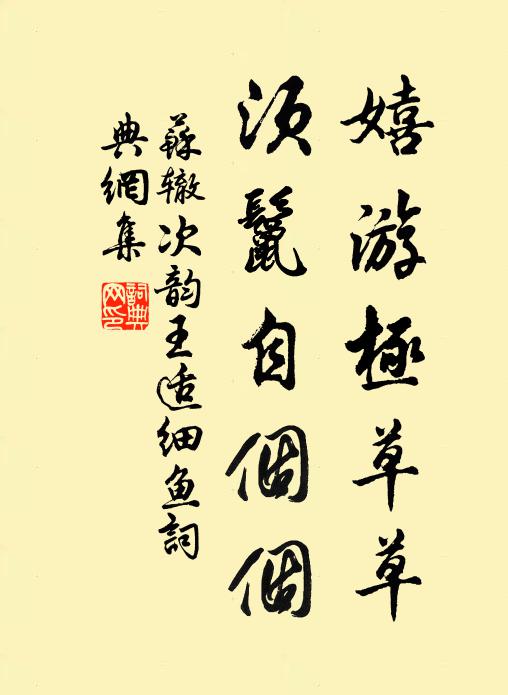 嬉游極草草
須鬣自個個
蘇辙次韵王适细鱼詞
典網集
詞典网印